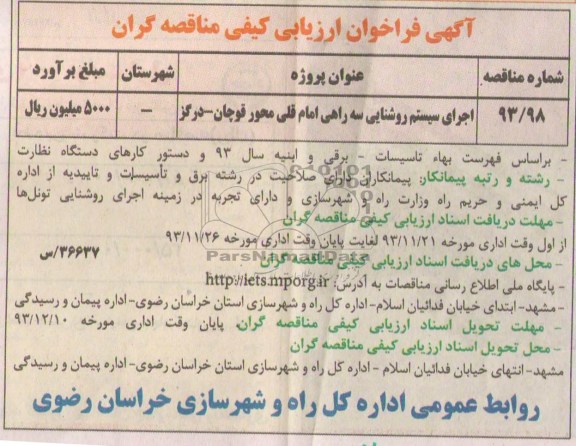 آگهی فراخوان ارزیابی کیفی مناقصه گران
شماره مناقصه عنوان پروژه شهرستان مبلغ برآورد
۹۳/۹۸ اجرای سیستم روشنایی سه راهی امام قلی محور قوچان-درگز – ۵۰۰۰ میلیون ریال
- براساس فهرست بهاء تاسیسات - برقی و ابنیه سال ۹۳ و دستور کارهای دستگاه نظارت
- رشته و رتبه پیمانکار: پیمانکاران دارای صلاحیت در رشته برق و تأسیسات و تاییدیه از اداره
کل ایمنی و حریم راه وزارت راه و شهرسازی و دارای تجربه در زمینه اجرای روشنایی تونل‌ها
- مهلت دریافت اسناد ارزیابی کیفی مناقصه گران
از اول وقت اداری مورخه ۹۳/۱۱/۲۱ لغایت پایان وقت اداری مورخه ۹۳/۱۱/۲۶
- محل های دریافت اسناد ارزیابی کیفی مناقصه گران
۳۶۶۳۷/س
- پایگاه ملی اطلاع رسانی مناقصات به آدرس: http://iets.mporg.ir
ParsNamadData
-مشهد-ابتدای خیابان فدائیان اسلام- اداره کل راه و شهرسازی استان خراسان رضوی-اداره پیمان و رسیدگی
- مهلت تحویل اسناد ارزیابی کیفی مناقصه گران: پایان وقت اداری مورخه ۹۳/۱۲/۱۰
- محل تحویل اسناد ارزیابی کیفی مناقصه گران
مشهد-انتهای خیابان فدائیان اسلام - اداره کل راه و شهرسازی استان خراسان رضوی-اداره پیمان و رسیدگی
روابط عمومی اداره کل راه و شهرسازی خراسان رضوی